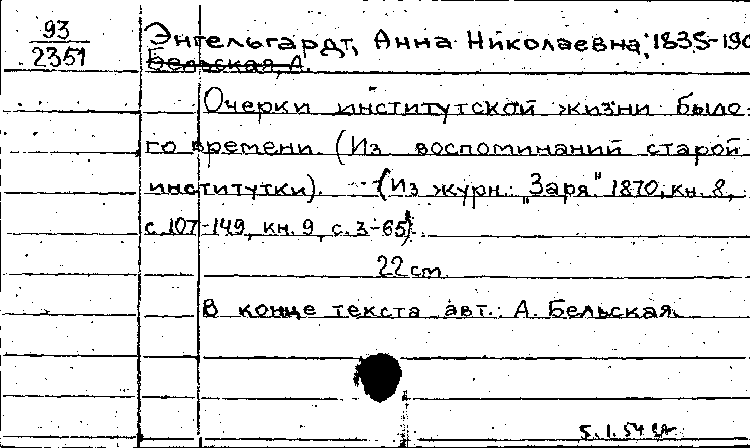 93
2351
Энгельгардт, Анна Николаевна, 1835-190
Бельская, А.
Очерки институтской жизни было-
го времени. (Из воспоминаний старой
институтки). (Из журн.: "Заря" 1870, кн. 8,
с. 107-149, кн. 9, с. 3-65).
22 cm.
В конце текста авт.: А. Бельская.
5.1.54